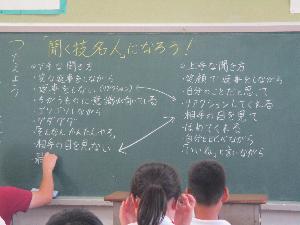 「聞く技名人」になろう!
つたえよう
◎下手な聞き方
・変な返事をしながら
・返事をしない(リアクション)
・ちがうものに意識が向いてる
・ゴソゴソしながら
・グダグダ
・相手の目を見ない
◎上手な聞き方
・笑顔で返事をしながら
・自分のことだと思って
・リアクションしてくれる
・相手の目を見て
・ほめてくれる
・「いいね」と言いながら